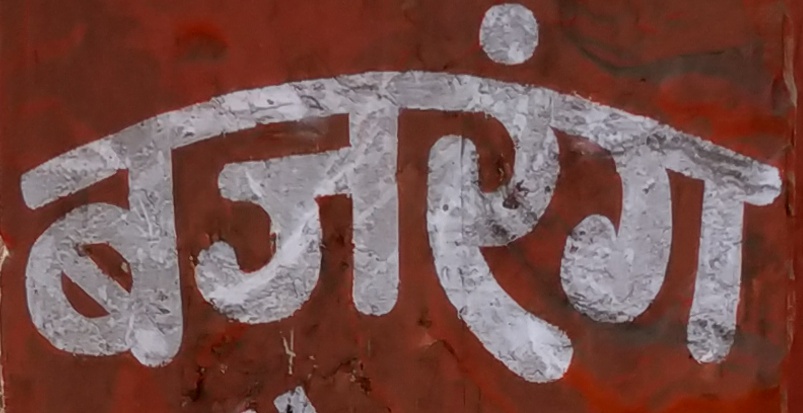 बजरंग